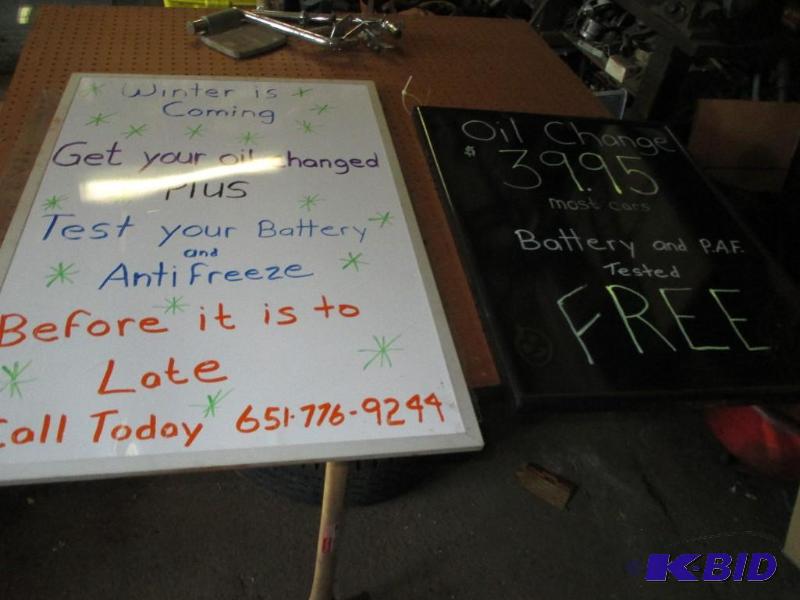 Winter is
Coming
Get your oil changed
Plus
Test your Battery
and
Antifreeze
Before it is to
Late
Call Today 651-776-9244
Oil Change
$39.95
most cars
Battery and P.A.F.
Tested
FREE
K-BID